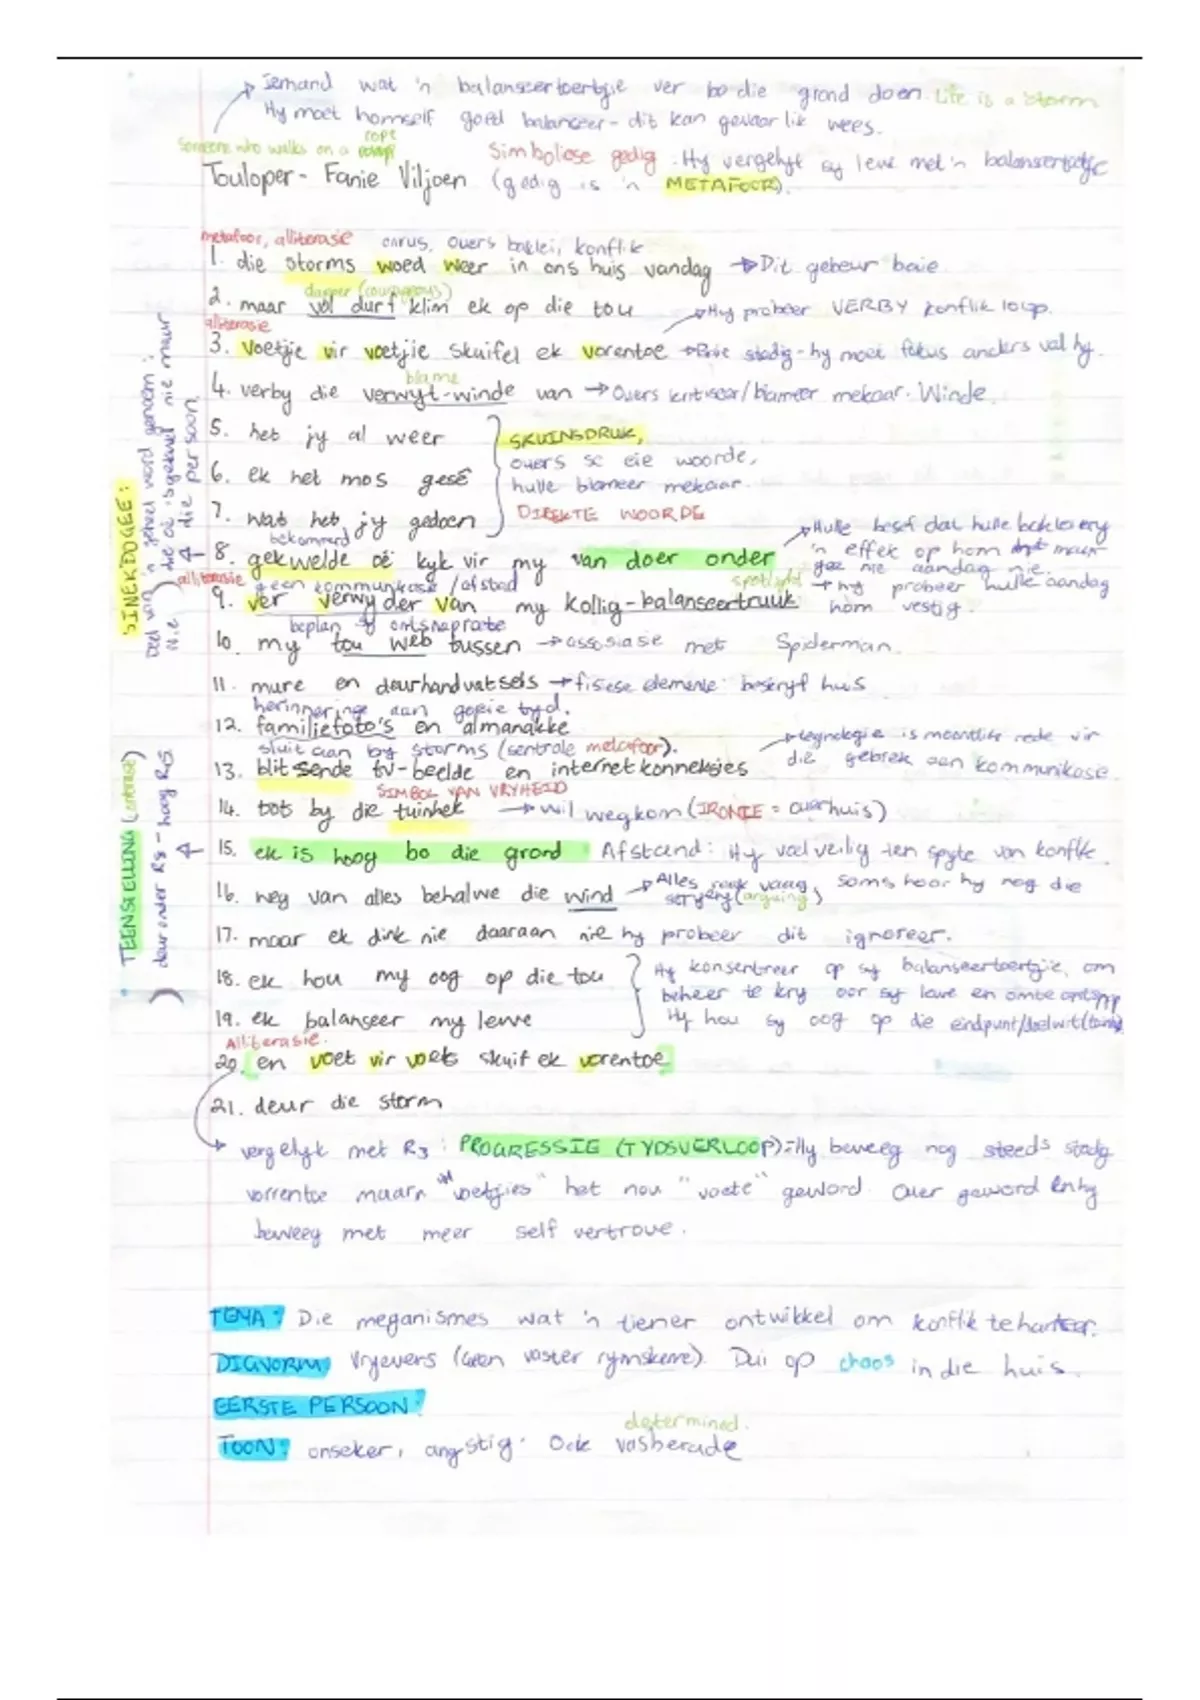 Iemand wat 'n balanseertoertjie ver bo die grond doen. Life is a storm
Hy moet homself goed balanseer - dit kan gevaarlik wees.
Someone who walks on a rope
Simboliese gedig. Hy vergelyk sy lewe met 'n balanseertoertjie
Touloper - Fanie Viljoen (gedig is 'n METAFOOR).
metafoor, alliterasie onrus, ouers baklei, konflik
1. die storms woed weer in ons huis vandag → Dit gebeur baie
dapper (courageous)
2. maar vol durf klim ek op die tou → Hy probeer VERBY konflik loop.
alliterasie
3. voetjie vir voetjie skuifel ek vorentoe → stadig - hy moet fokus anders val hy.
blame
4. verby die verwyt-winde van → Ouers kritiseer/blameer mekaar. Winde
5. het jy al weer
SKUINSDRUK,
ouers se eie woorde,
6. ek het mos gesê
hulle blameer mekaar.
7. wat het jy gedoen
DIREKTE WOORDE
bekommerd
8. gekwelde oë kyk vir my van doer onder
→ Hulle besef dat hulle bakleiery
'n effek op hom maar
gee nie aandag nie.
alliterasie geen kommunikasie /afstand
spotlight → Hy probeer hulle aandag
hom vestig.
9. ver verwyder van my kollig-balanseertruuk
beplan sy ontsnaproete
10. my tou web tussen → assosiasie met Spiderman.
11. mure en deurhandvatsels → fisiese elemente beskryf huis
herinneringe aan goeie tyd.
12. familiefoto's en almanakke
sluit aan by storms (sentrale metafoor).
13. blitsende tv-beelde en internetkonneksies
→ tegnologie is moontlike rede vir
die gebrek aan kommunikasie
SIMBOL VAN VRYHEID
14. tot by die tuinhek → wil wegkom (IRONIE = ouerhuis)
15. ek is hoog bo die grond Afstand: Hy voel veilig ten spyte van konflik.
16. weg van alles behalwe die wind → Alles raak vaag, soms hoor hy nog die
(arguing)
17. maar ek dink nie daaraan nie hy probeer dit ignoreer.
18. ek hou my oog op die tou
Hy konsentreer op sy balanseertoertjie, om
beheer te kry oor sy lewe en om te ontsnap
19. ek balanseer my lewe
Hy hou sy oog op die eindpunt/doelwit
Alliterasie.
20. en voet vir voet skuif ek vorentoe
21. deur die storm
vergelyk met R3: PROGRESSIE (TYDSVERLOOP): Hy beweeg nog steeds stadig
vorrentoe maarn "voetjies" het nou "voete" geword. Ouer geword en hy
beweeg met meer self vertroue.
SINEKDOGEE:
Deel van 'n geheel word genoem:
N.e die oë sigself nie maar
die persoon.
TEENSTELLING (contrast)
deur onder R8 - hoog R15
TEMA: Die meganismes wat 'n tiener ontwikkel om konflik te hanteer.
DIGVORM: Vryevers (Geen vaster rymskeme). Dui op chaos in die huis.
EERSTE PERSOON:
determined.
TOON: onseker, angstig. Ook vasberade